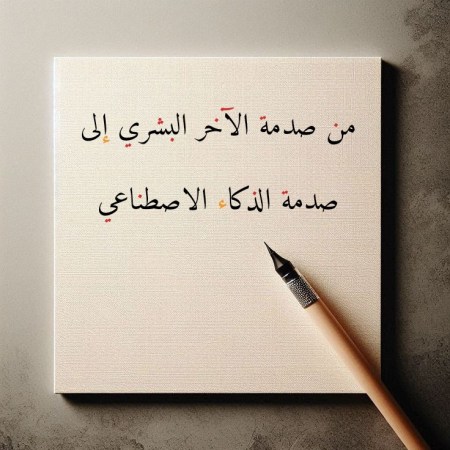 من صدمة الآخر البشري إلى
صدمة الذكاء الاصطناعي